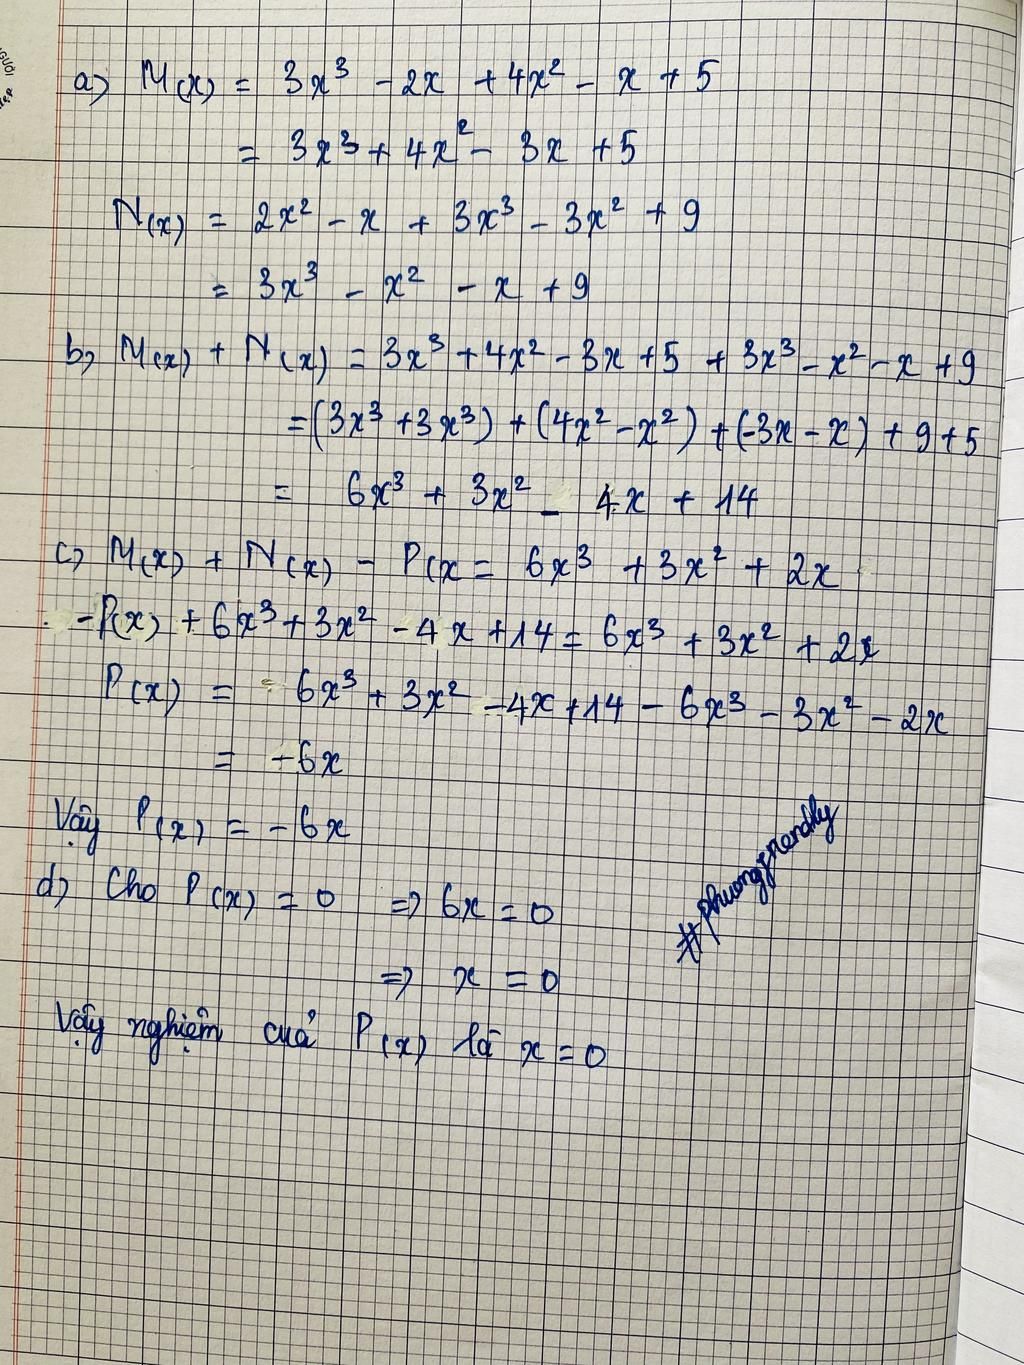 GƯỜI
a) M(x) = 3x³ - 2x + 4x² - x + 5
= 3x³ + 4x² - 3x + 5
N(x) = 2x² - x + 3x³ - 3x² + 9
= 3x³ - x² - x + 9
b) M(x) + N(x) = 3x³ + 4x² - 3x + 5 + 3x³ - x² - x + 9
= (3x³ + 3x³) + (4x² - x²) + (-3x - x) + 9 + 5
= 6x³ + 3x² - 4x + 14
c) M(x) + N(x) - P(x = 6x³ + 3x² + 2x
-P(x) + 6x³ + 3x² - 4x + 14 = 6x³ + 3x² + 2x
P(x) = 6x³ + 3x² - 4x + 14 - 6x³ - 3x² - 2x
= -6x
Vậy P(x) = -6x
d) Cho P(x) = 0 => 6x = 0
=> x = 0
Vậy nghiệm cuả P(x) là x = 0
#phuongfriendly